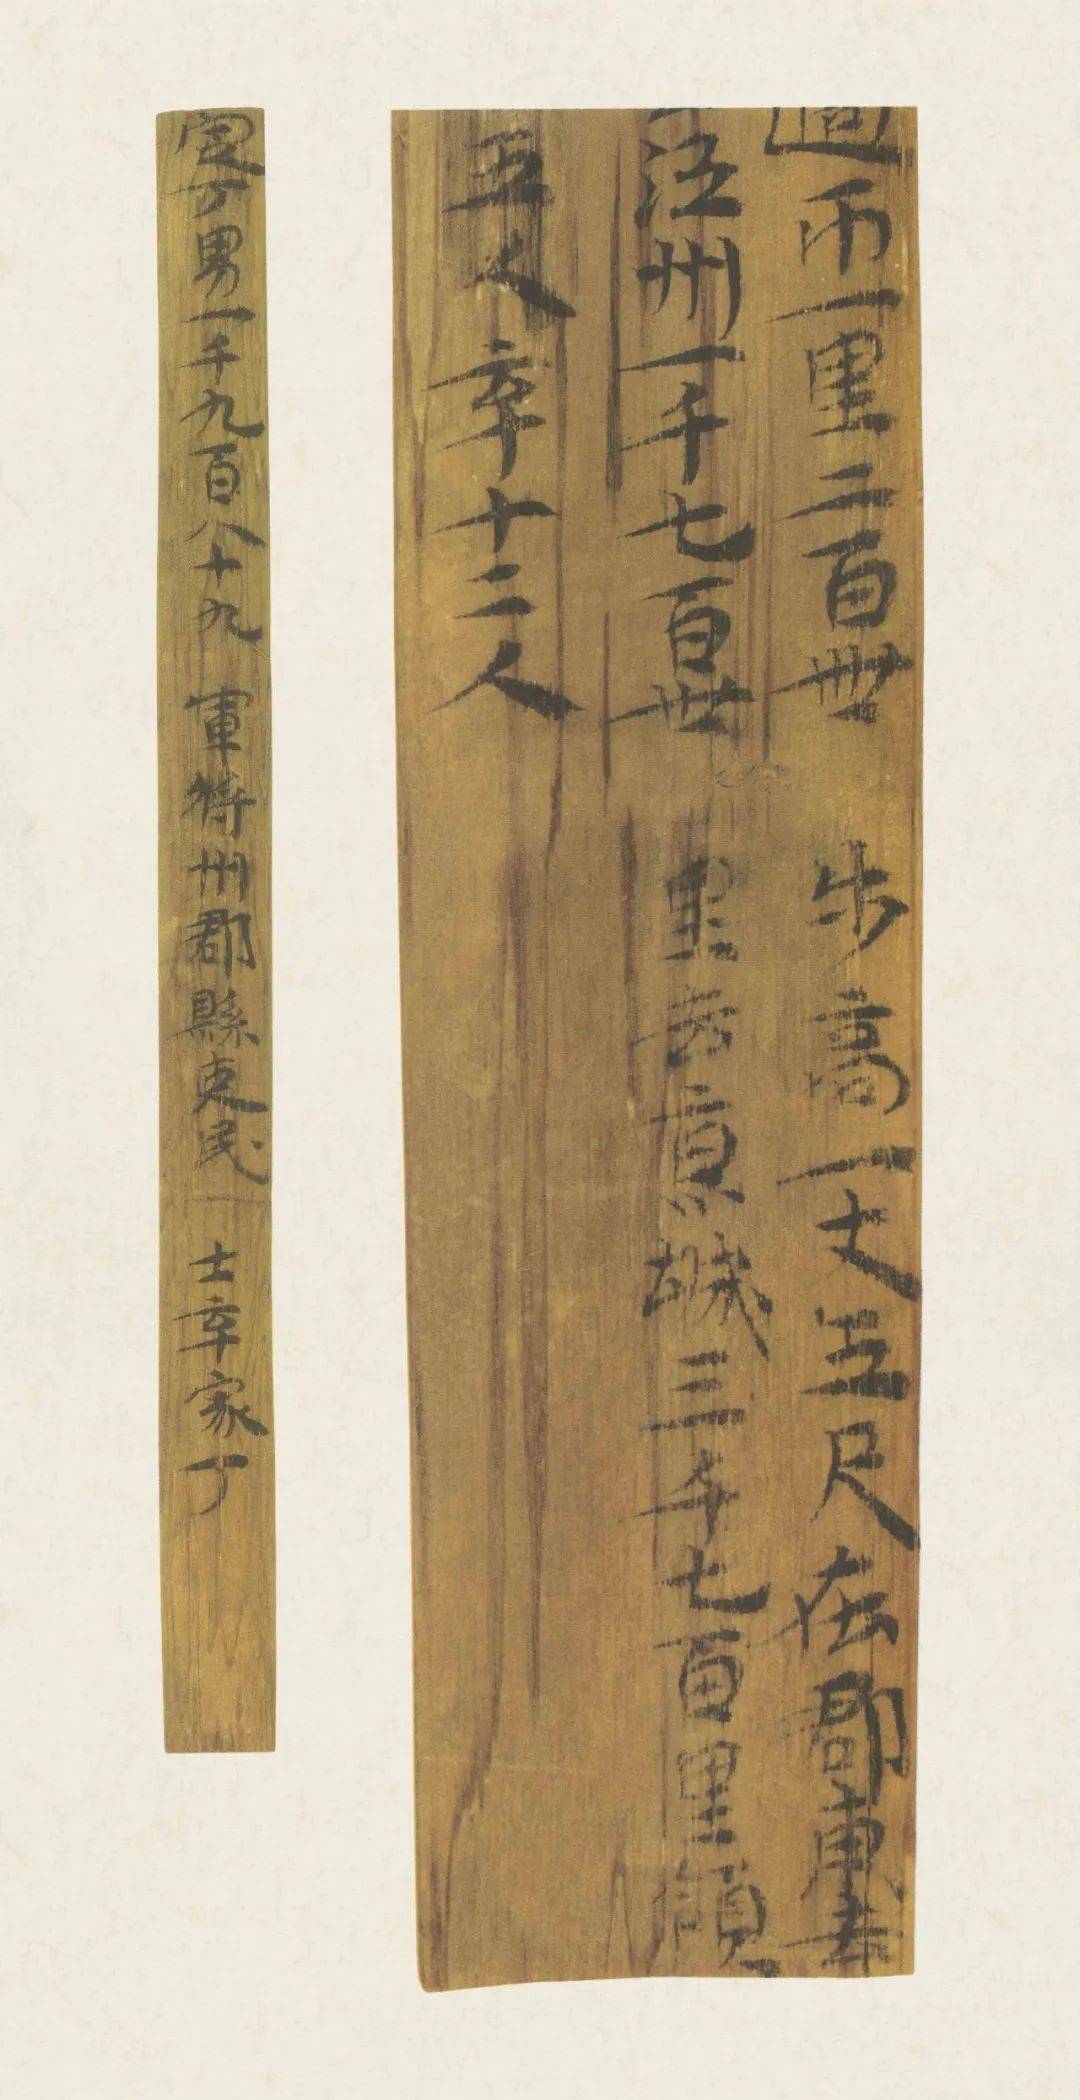 迴帀一里二百卌步高一丈五尺在郡東去
江州一千七百卅里去京城三千七百里領
五人卒十二人
定丁男一千九百八十九 軍將州郡縣吏民 士卒家丁